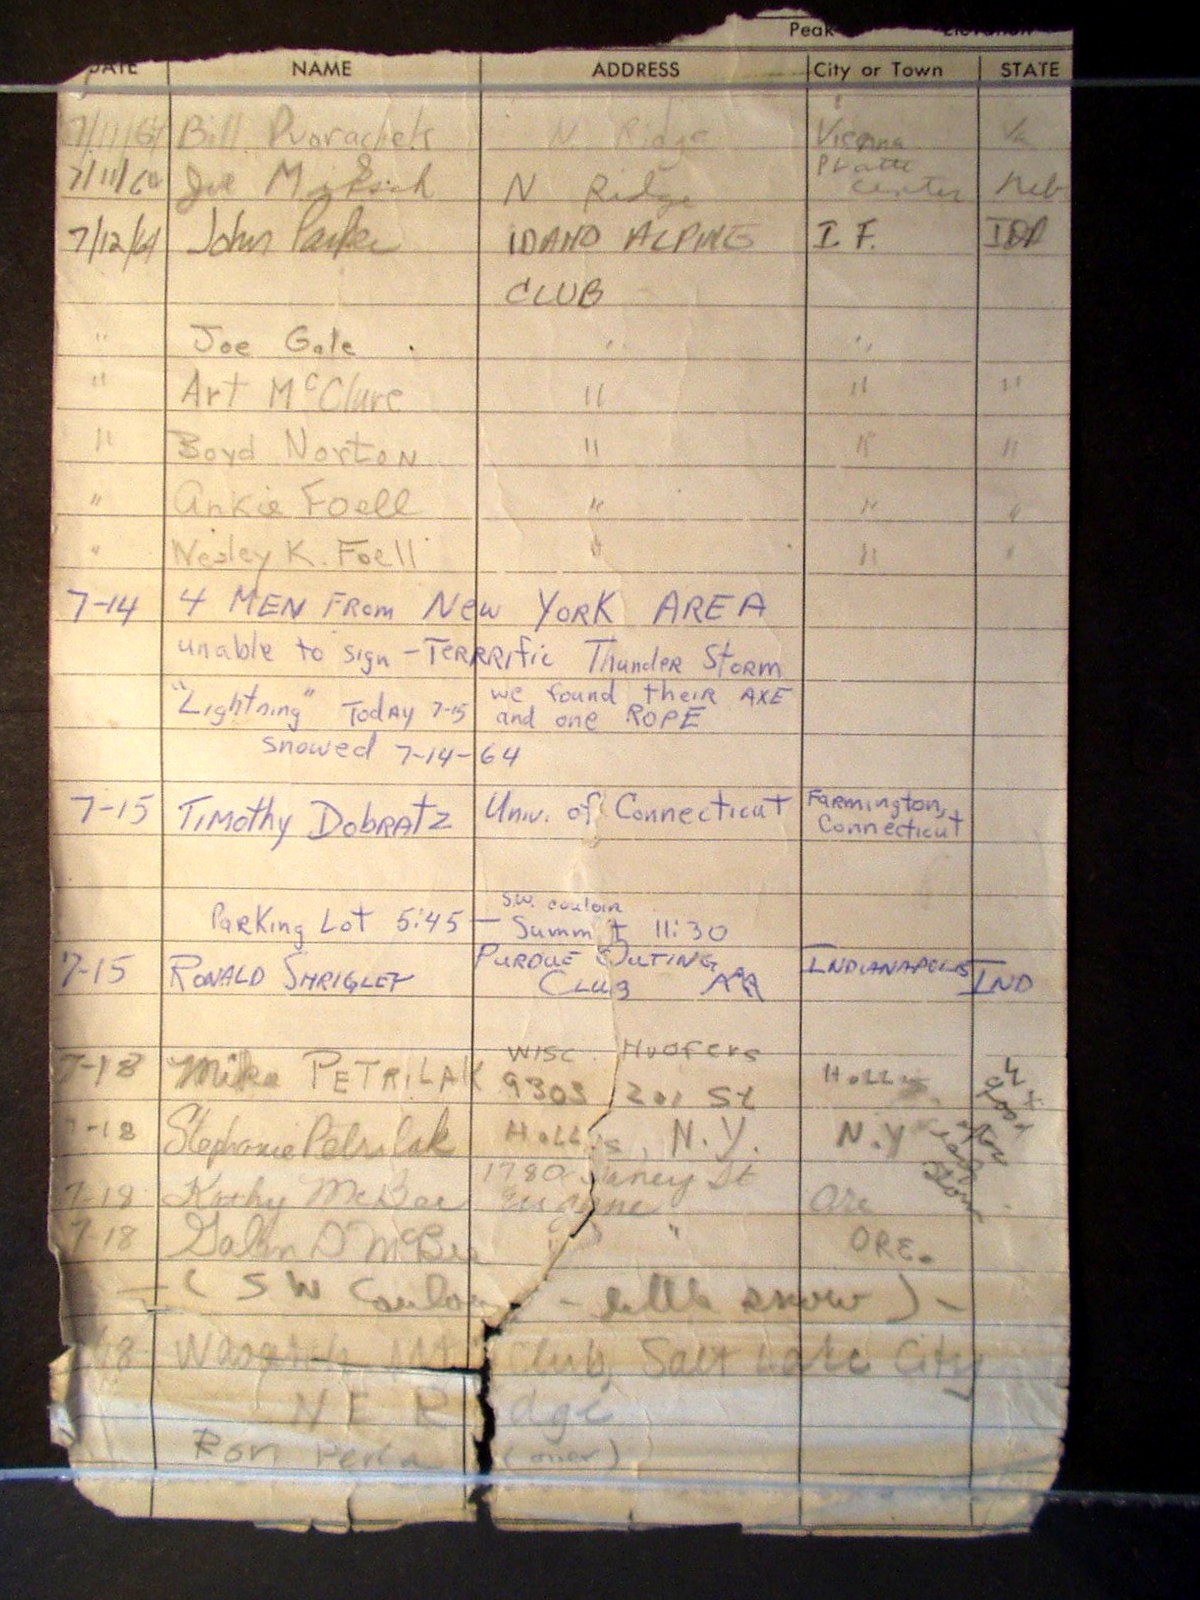 Peak Elevation
DATE NAME ADDRESS City or Town STATE
7/11/64 Bill N. Ridge Vienna Va
7/11/64 Joe N Ridge Platte Center Neb
7/12/64 John Parker IDAHO ALPINE I. F. IDA
CLUB
" Joe Gale " "
" Art McClure " " "
" Boyd Norton " " "
" Ankie Foell " " "
" Wesley K. Foell " " "
7-14 4 MEN FROM NEW YORK AREA
unable to sign - TERRRIfic Thunder Storm
"Lightning" Today 7-15 we found their AXE
and one ROPE
snowed 7-14-64
7-15 TIMOTHY DOBRATZ Univ. of Connecticut Farmington,
Connecticut
S.W. couloir
Parking Lot 5:45 — Summit 11:30
7-15 RONALD SHRIGLEY PURDUE OUTING INDIANAPOLIS IND
CLUB
WISC. Hoofers
7-18 Mike PETRILAK 9303 201 St Hollis,
7-18 Stephanie Petrilak Hollis, N.Y. N.Y
7-18 Kathy McBee 1780 St
Eugene Ore
7-18 Galen D McBee " " ORE.
- (SW Couloir - little snow) -
7/18 Wasatch Mt Club, Salt Lake City
N E Ridge
Ron Perla (over)